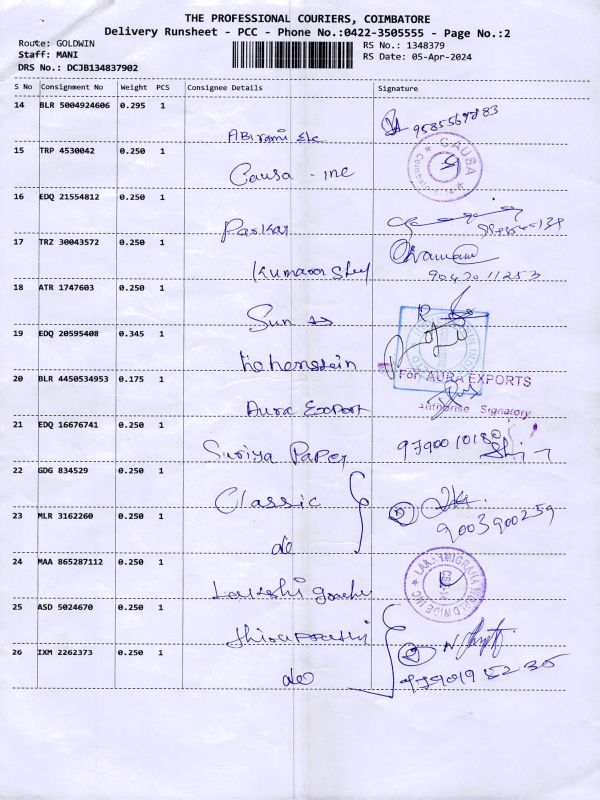 THE PROFESSIONAL COURIERS, COIMBATORE
Delivery Runsheet - PCC - Phone No.:0422-3505555 - Page No.:2
Route: GOLDWIN
RS No.: 1348379
Staff: MANI
RS Date: 05-Apr-2024
DRS No.: DCJB134837902
S No Consignment No Weight PCS Consignee Details Signature
14 BLR 5004924606 0.295 1
ABirami Ele
15 TRP 4530042 0.250 1
CAUSA
Coimbatore-14
Causa - inc
16 EDQ 21554812 0.250 1
Parkar
17 TRZ 30043572 0.250 1
Kumaran Steel
90420 11253
18 ATR 1747603 0.250 1
Sun
19 EDQ 20595408 0.345 1
Hohenstein
20 BLR 4450534953 0.175 1
For AURA EXPORTS
Aura Export
Authorise Signatory
21 EDQ 16676741 0.250 1
9790010180
Suriya Paper
22 GDG 834529 0.250 1
Classic
9003900259
23 MLR 3162260 0.250 1
do
24 MAA 865287112 0.250 1
WORLDWIDE INC
25 ASD 5024670 0.250 1
26 IXM 2262373 0.250 1
do